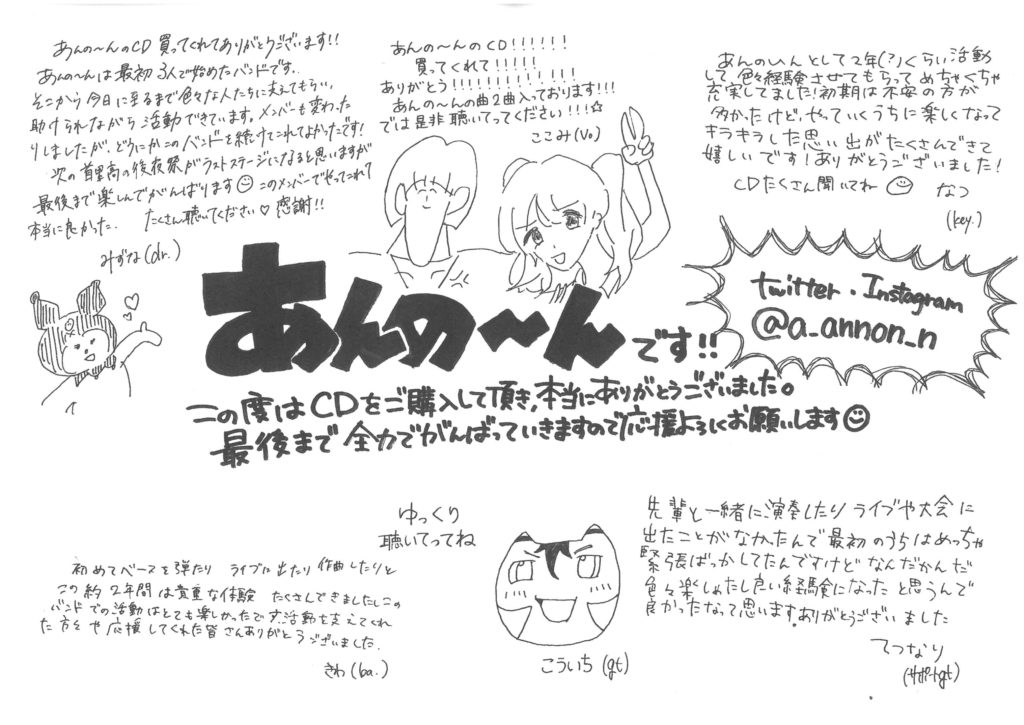 あんの〜んのCD 買ってくれてありがとうございます!!
あんの〜んは最初3人で始めたバンドです。
そこから今日に至るまで色々な人たちに支えてもらい、
助けられながら活動できています。メンバーも変わった
りしましたが、どうにかこのバンドを続けてこれてよかったです!
次の首里高の後夜祭がラストステージになると思いますが
最後まで楽しんでがんばります☺このメンバーでやってこれて
本当に良かった。 たくさん聴いてください♡感謝!!
みずな(dr.)
あんの〜んのCD!!!!!!
買ってくれて!!!!!
ありがとう!!!!!!!!!!!!
あんの〜んの曲2曲入っております!!!
では是非聴いてってください!!!☆
ここみ(Vo)
あんの〜んとして2年(?)くらい活動
して、色々経験させてもらってめちゃくちゃ
充実してました!初期は不安の方が
多かったけど、やっていくうちに楽しくなって
キラキラした思い出がたくさんできて
嬉しいです!ありがとうございました!
CDたくさん聞いてね ☺ なつ
(key.)
twitter・Instagram
@a_annon_n
あんの〜んです!!
この度はCDをご購入して頂き、本当にありがとうございました。
最後まで全力でがんばっていきますので応援よろしくお願いします☺
初めてベースを弾たり ライブに出たり 作曲したりと
この約2年間は貴重な体験 たくさんできましたしこの
バンドでの活動はとても楽しかったです。活動を支えてくれ
た方々や応援してくれた皆さんありがとうございました。
きわ(ba.)
ゆっくり
聴いてってね
こういち(gt)
先輩と一緒に演奏したりライブや大会に
出たことがなかったんで最初のうちはめっちゃ
緊張ばっかしてたんですけどなんだかんだ
色々楽しめたし良い経験になったと思うんで
良かったなって思います。ありがとうございました
てつなり
(サポートgt)